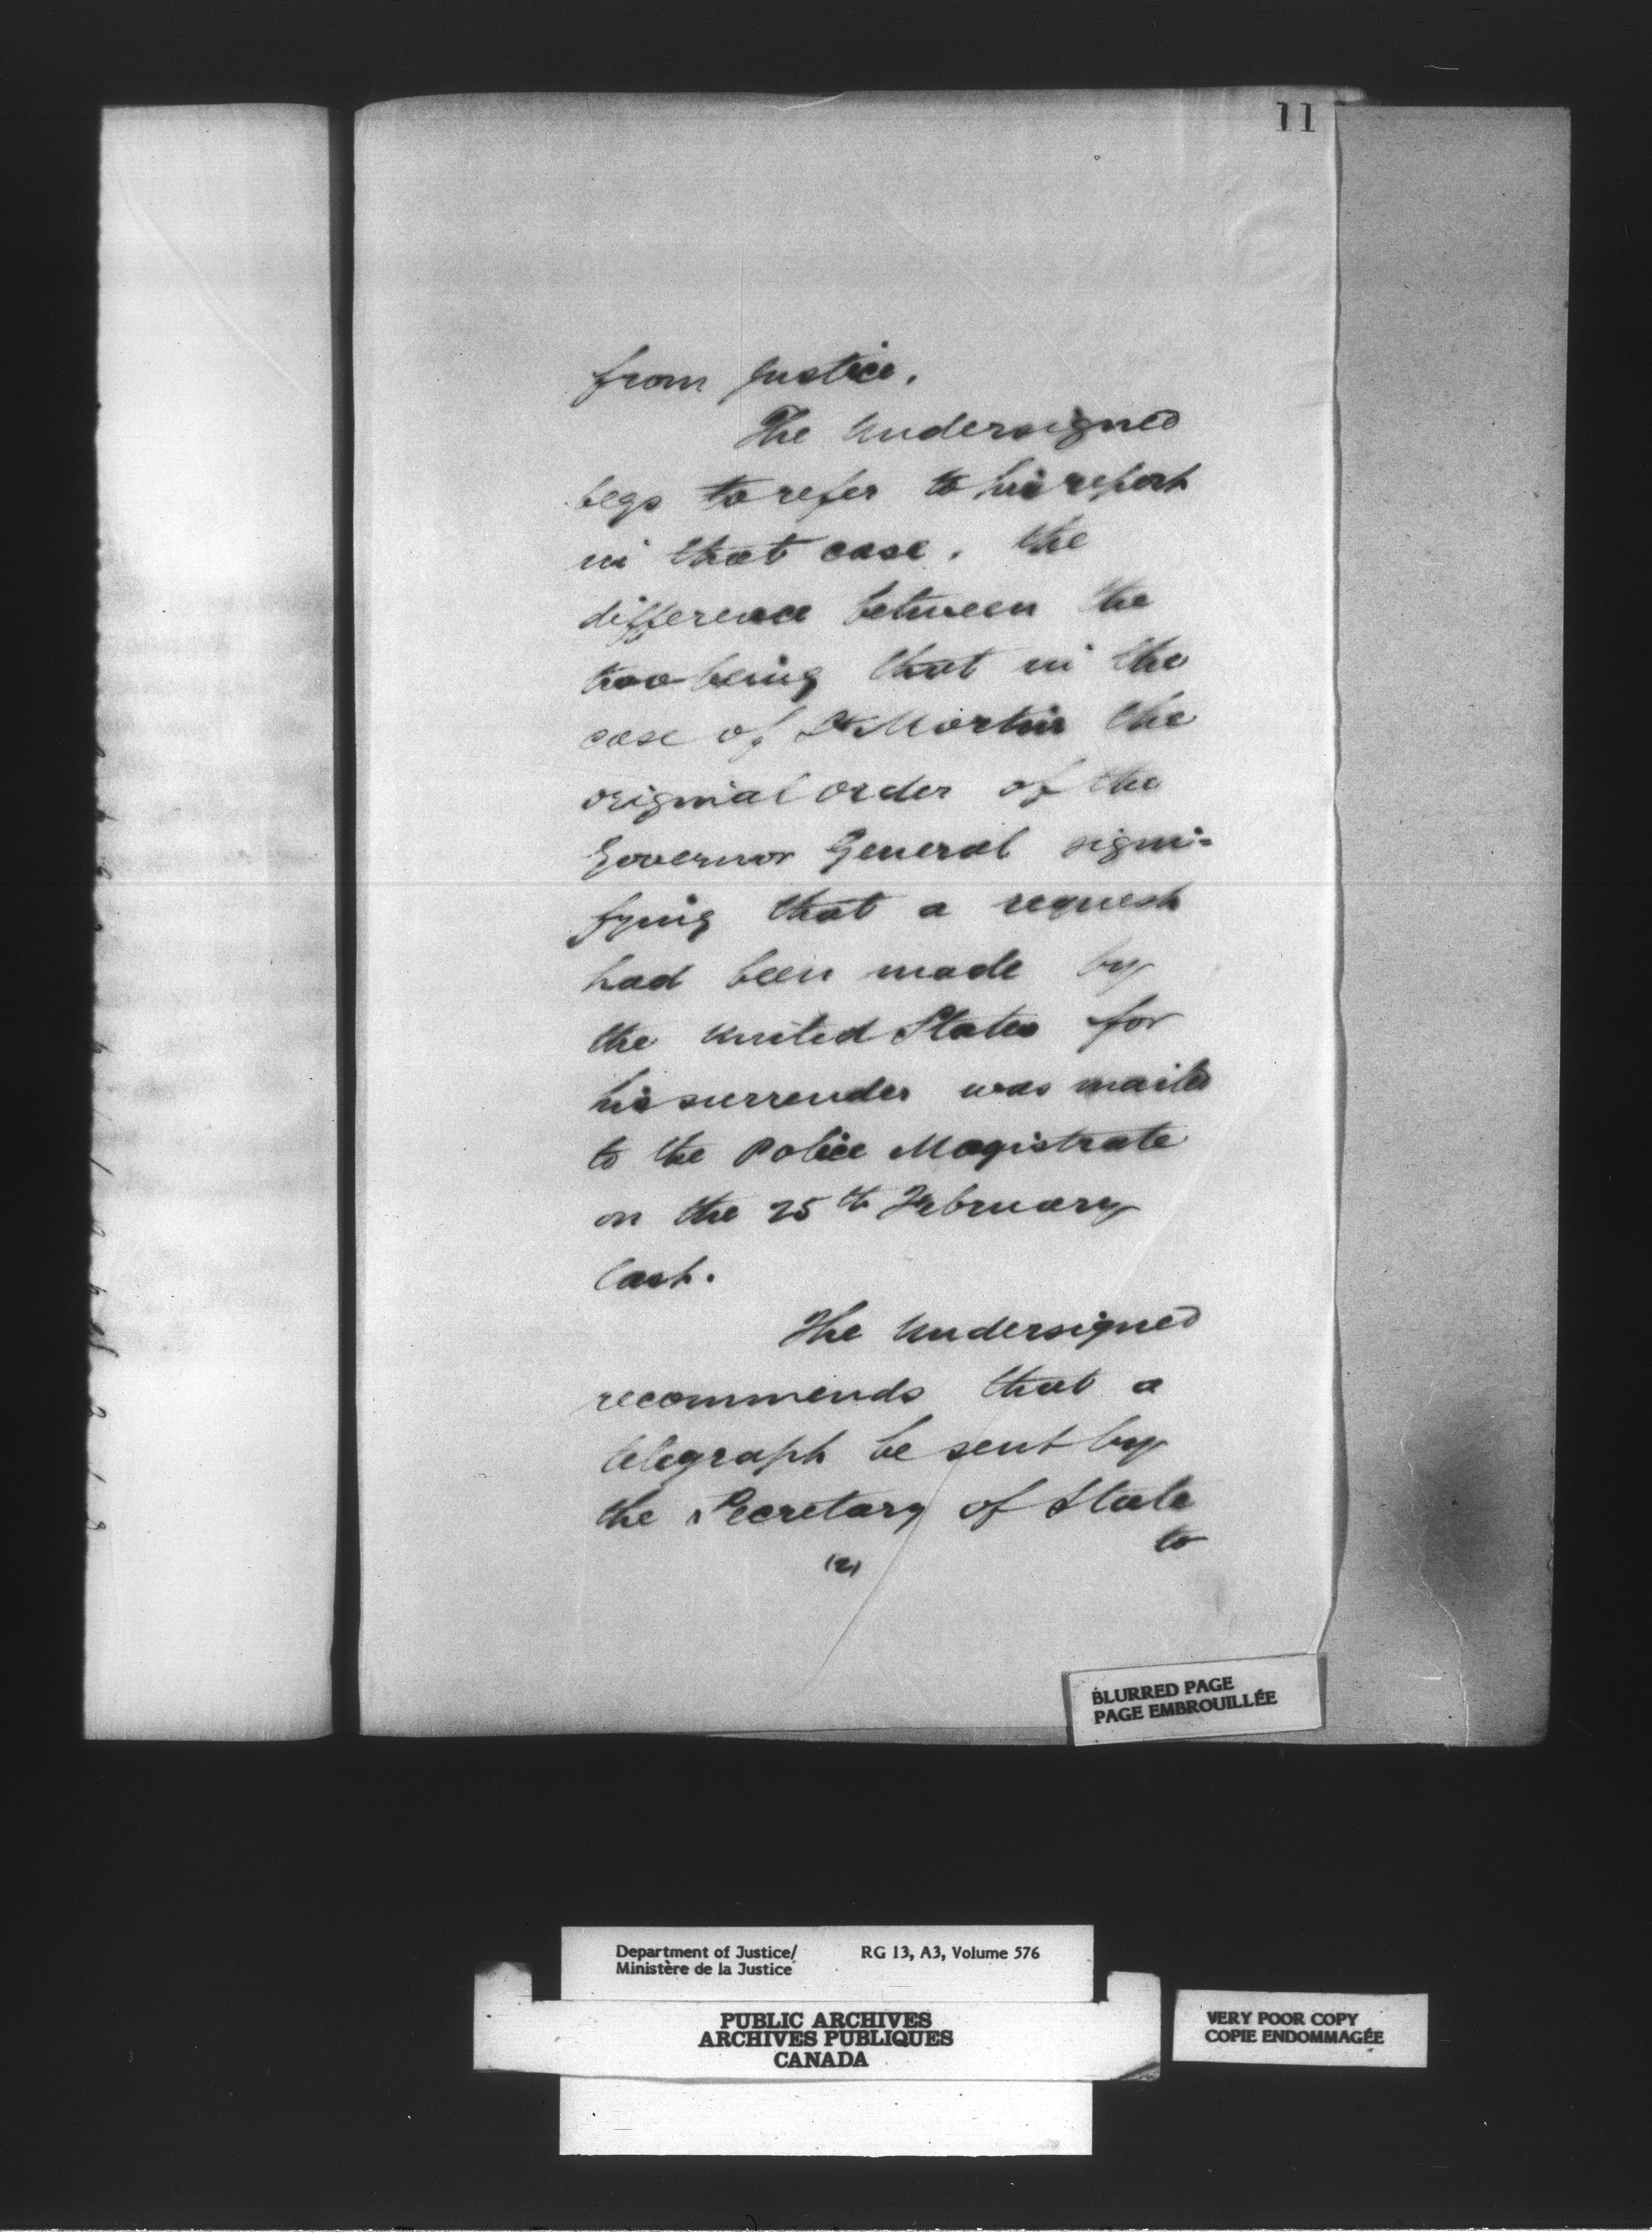 11
from Justice.
The Undersigned
begs to refer to his report
in that case. the
difference between the
two being that in the
case of St Martin the
original order of the
Governor General signi=
fying that a request
had been made by
the United States for
his surrender was mailed
to the Police Magistrate
on the 25th February
last.
The Undersigned
recommends that a
telegraph be sent by
the Secretary of State
to
(2)
BLURRED PAGE
PAGE EMBROUILLÉE
Department of Justice/ RG 13, A3, Volume 576
Ministère de la Justice
PUBLIC ARCHIVES
ARCHIVES PUBLIQUES
CANADA
VERY POOR COPY
COPIE ENDOMMAGÉE